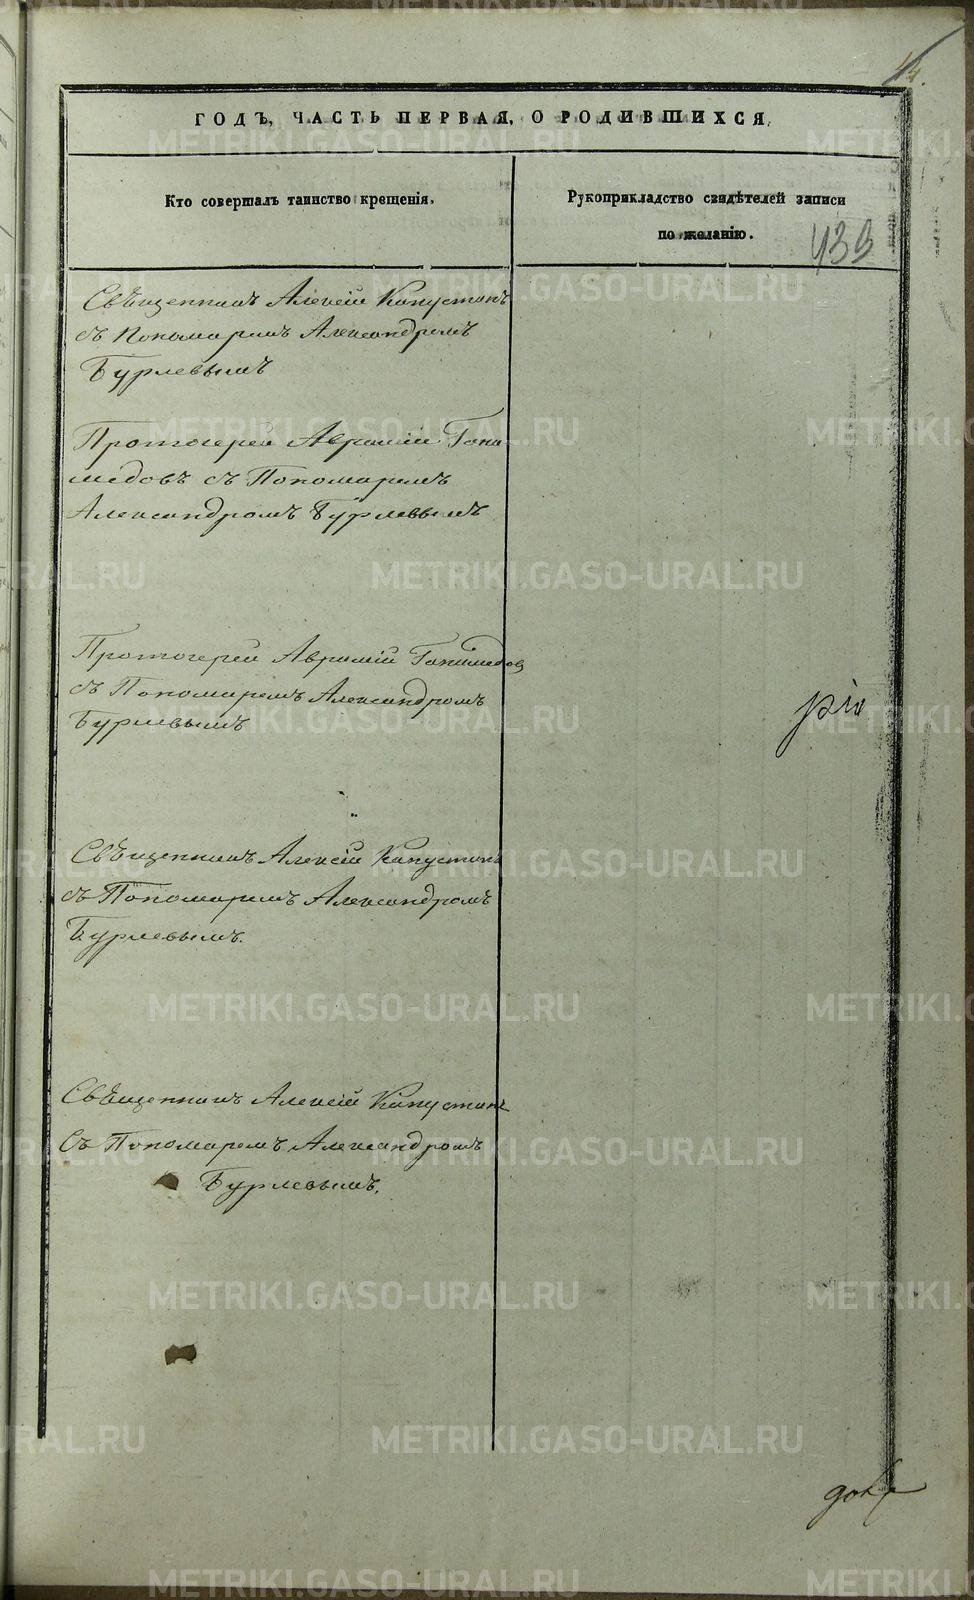 ГОДЪ, ЧАСТЬ ПЕРВАЯ, О РОДИВШИХСЯ,
Кто совершалъ таинство крещенія.
Рукоприкладство свидѣтелей записи
по желанію.
433
Священникъ Алексій Капустинъ
съ Пономаремъ Александромъ
Бурлевымъ
Протоіерей Авраамій Гани-
медовъ съ Пономаремъ
Александромъ Бурлевымъ
Протоіерей Аврамій Ганимедовъ
съ Пономаремъ Александромъ
Бурлевымъ
Священникъ Алексій Капустинъ
съ Пономаремъ Александромъ
Бурлевымъ.
Священникъ Алексій Капустинъ
Съ Пономаремъ Александромъ
Бурлевымъ.
METRIKI.GASO-URAL.RU